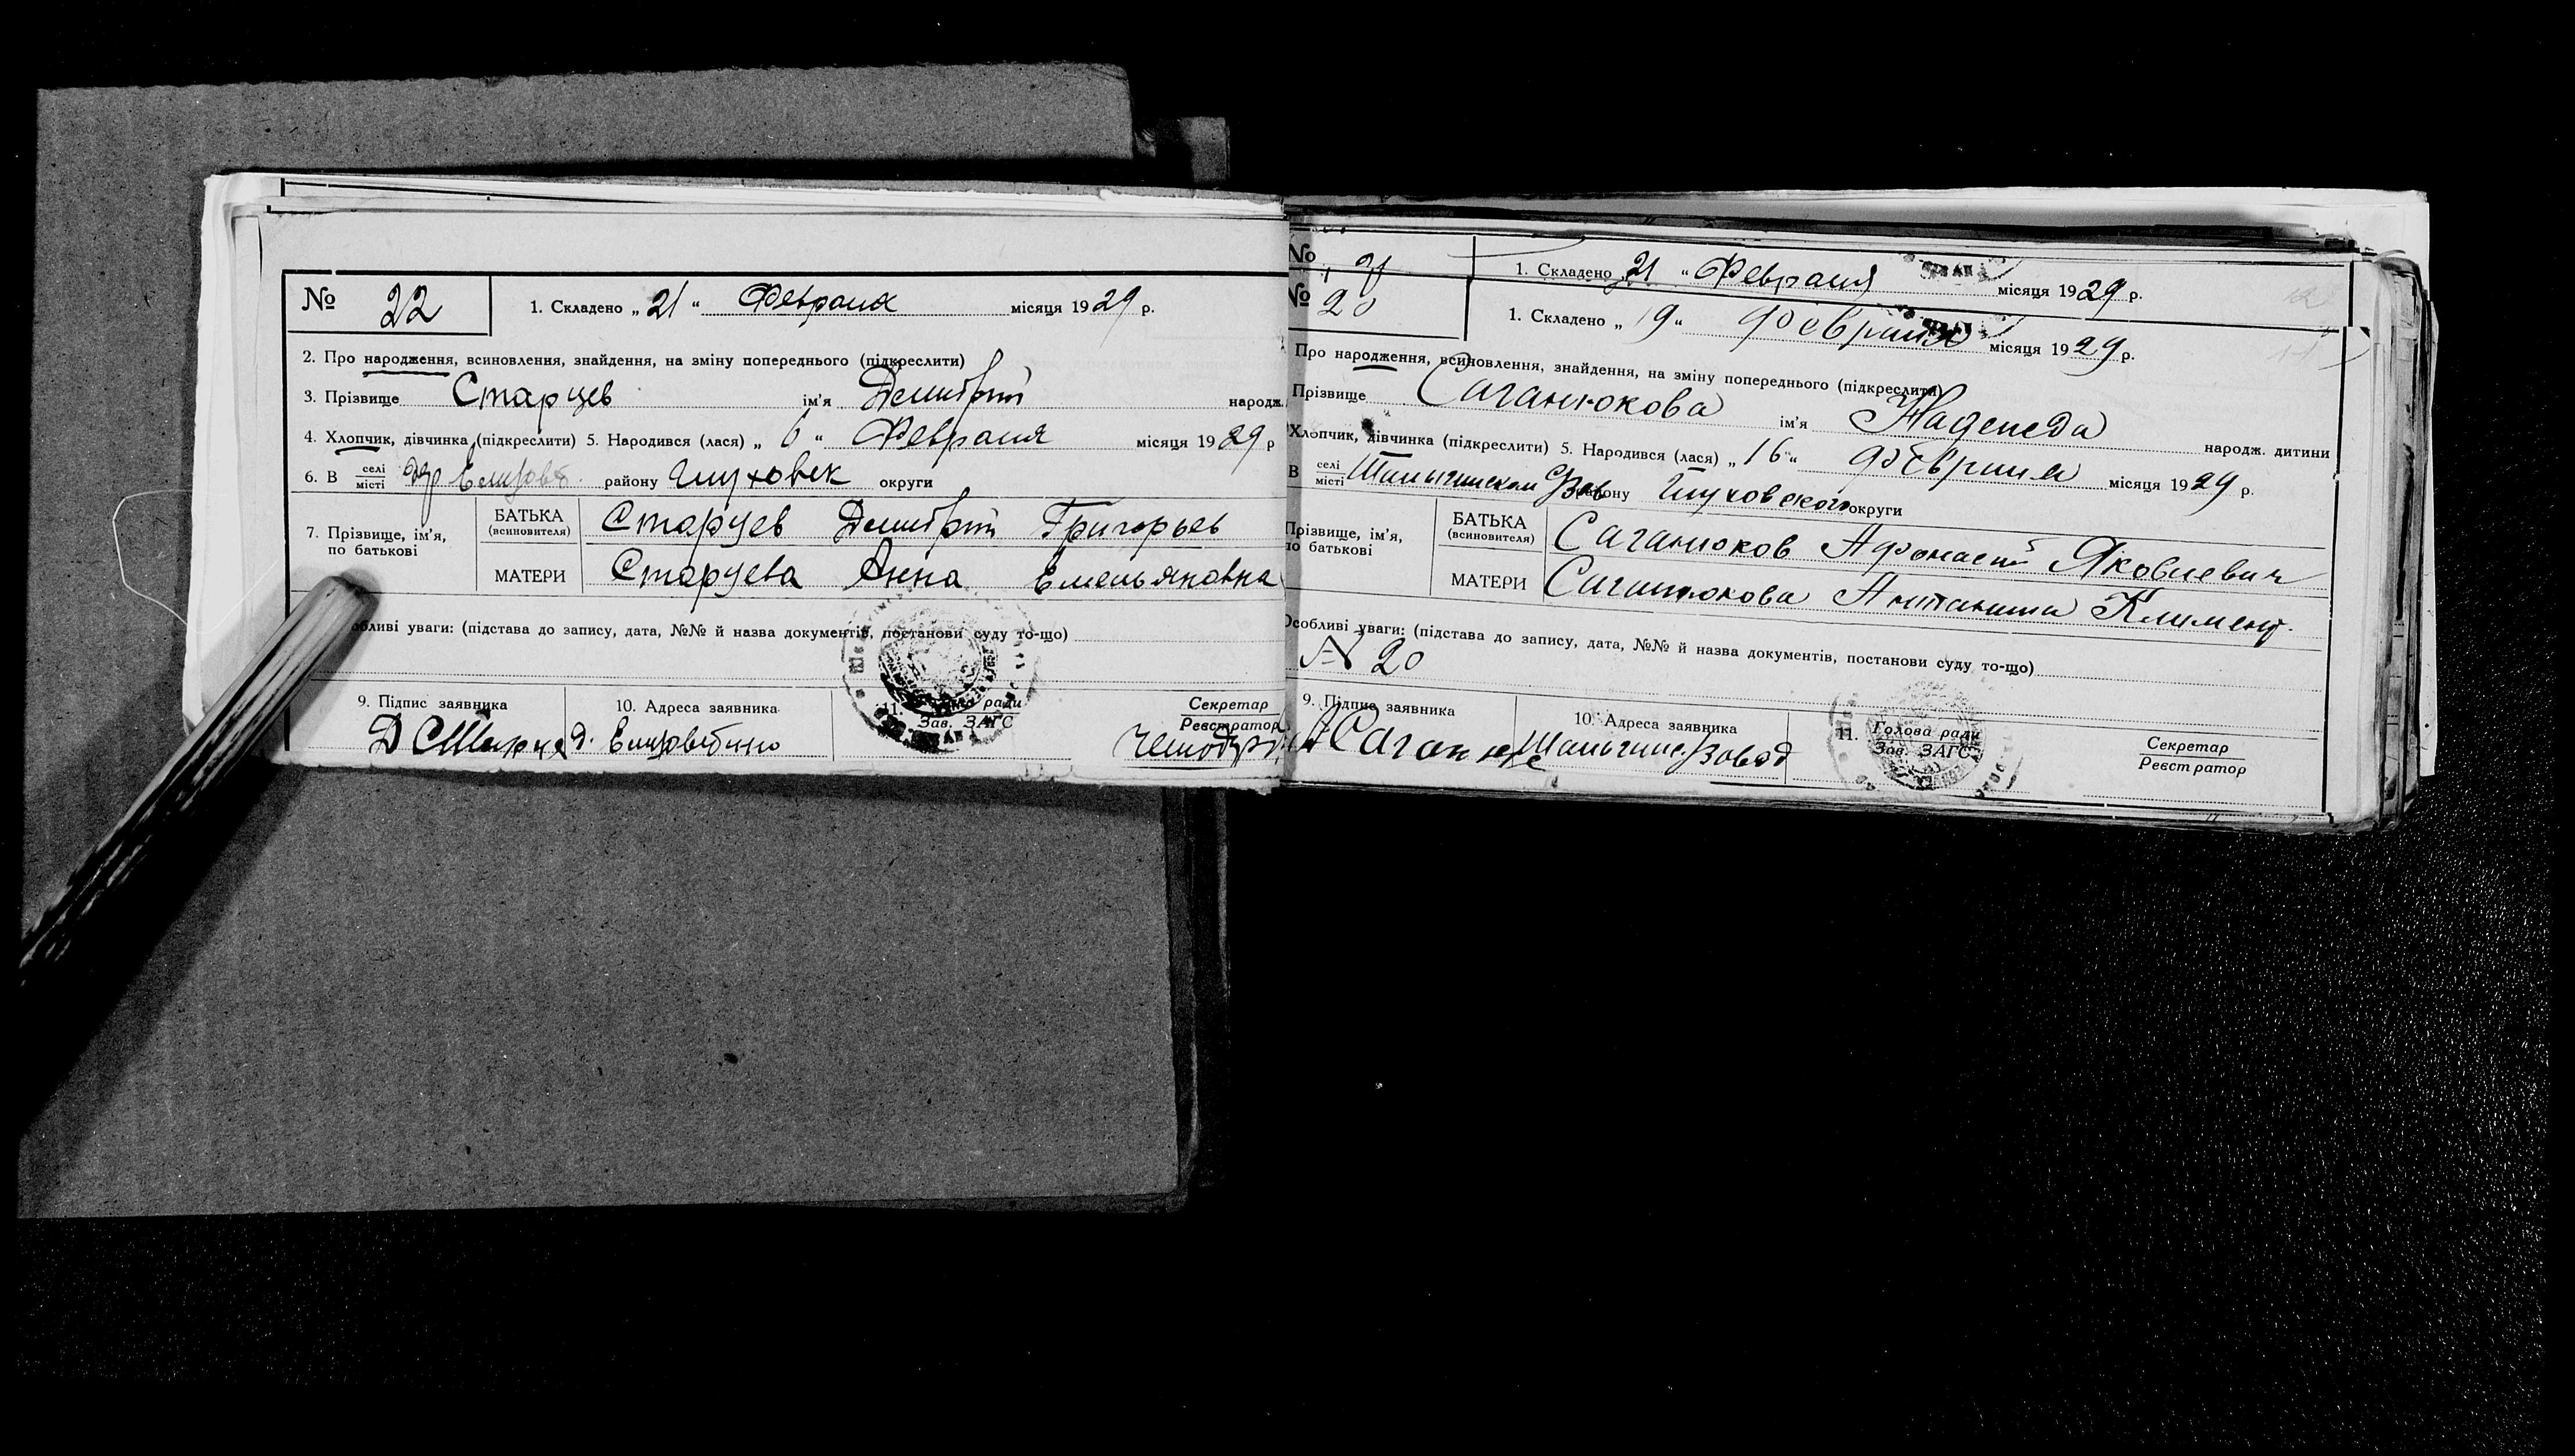 № 22 1. Складено „ 21 “ Февраля місяця 1929 р.
2. Про народження, всиновлення, знайдення, на зміну попереднього (підкреслити)
3. Прізвище Старцев ім'я Дмитрий народж.
4. Хлопчик, дівчинка (підкреслити) 5. Народився (лася) „ 6 “ Февраля місяця 1929 р
6. В селі місті району Глуховск округи
7. Прізвище, ім'я, по батькові
БАТЬКА (всиновителя) Старцев Дмитрий Григорьев
МАТЕРИ Старцева Анна Емельяновна
обливі уваги: (підстава до запису, дата, №№ й назва документів, постанови суду то-що)
9. Підпис заявника 10. Адреса заявника 11. ради Зав. ЗАГС Секретар Реєстратор
Д Старцев д.
№ 21 1. Складено „ 21 “ Февраля місяця 1929 р.
№ 20 1. Складено „ 19 “ февраля місяця 1929 р.
Про народження, всиновлення, знайдення, на зміну попереднього (підкреслити)
Прізвище Саганюкова ім'я Надежда народж. дитини
Хлопчик, дівчинка (підкреслити) 5. Народився (лася) „ 16 “ февраля місяця 1929 р.
В селі місті Шалыгинском Зав району Глуховского округи
Прізвище, ім'я, по батькові
БАТЬКА (всиновителя) Саганюков Афонасий Яковлевич
МАТЕРИ Саганюкова Антанина Климент.
Особливі уваги: (підстава до запису, дата, №№ й назва документів, постанови суду то-що)
N 20
9. Підпис заявника 10. Адреса заявника 11. Голова ради Зав. ЗАГС Секретар Реєстратор
А Саганюк Шалыгинс. Завод